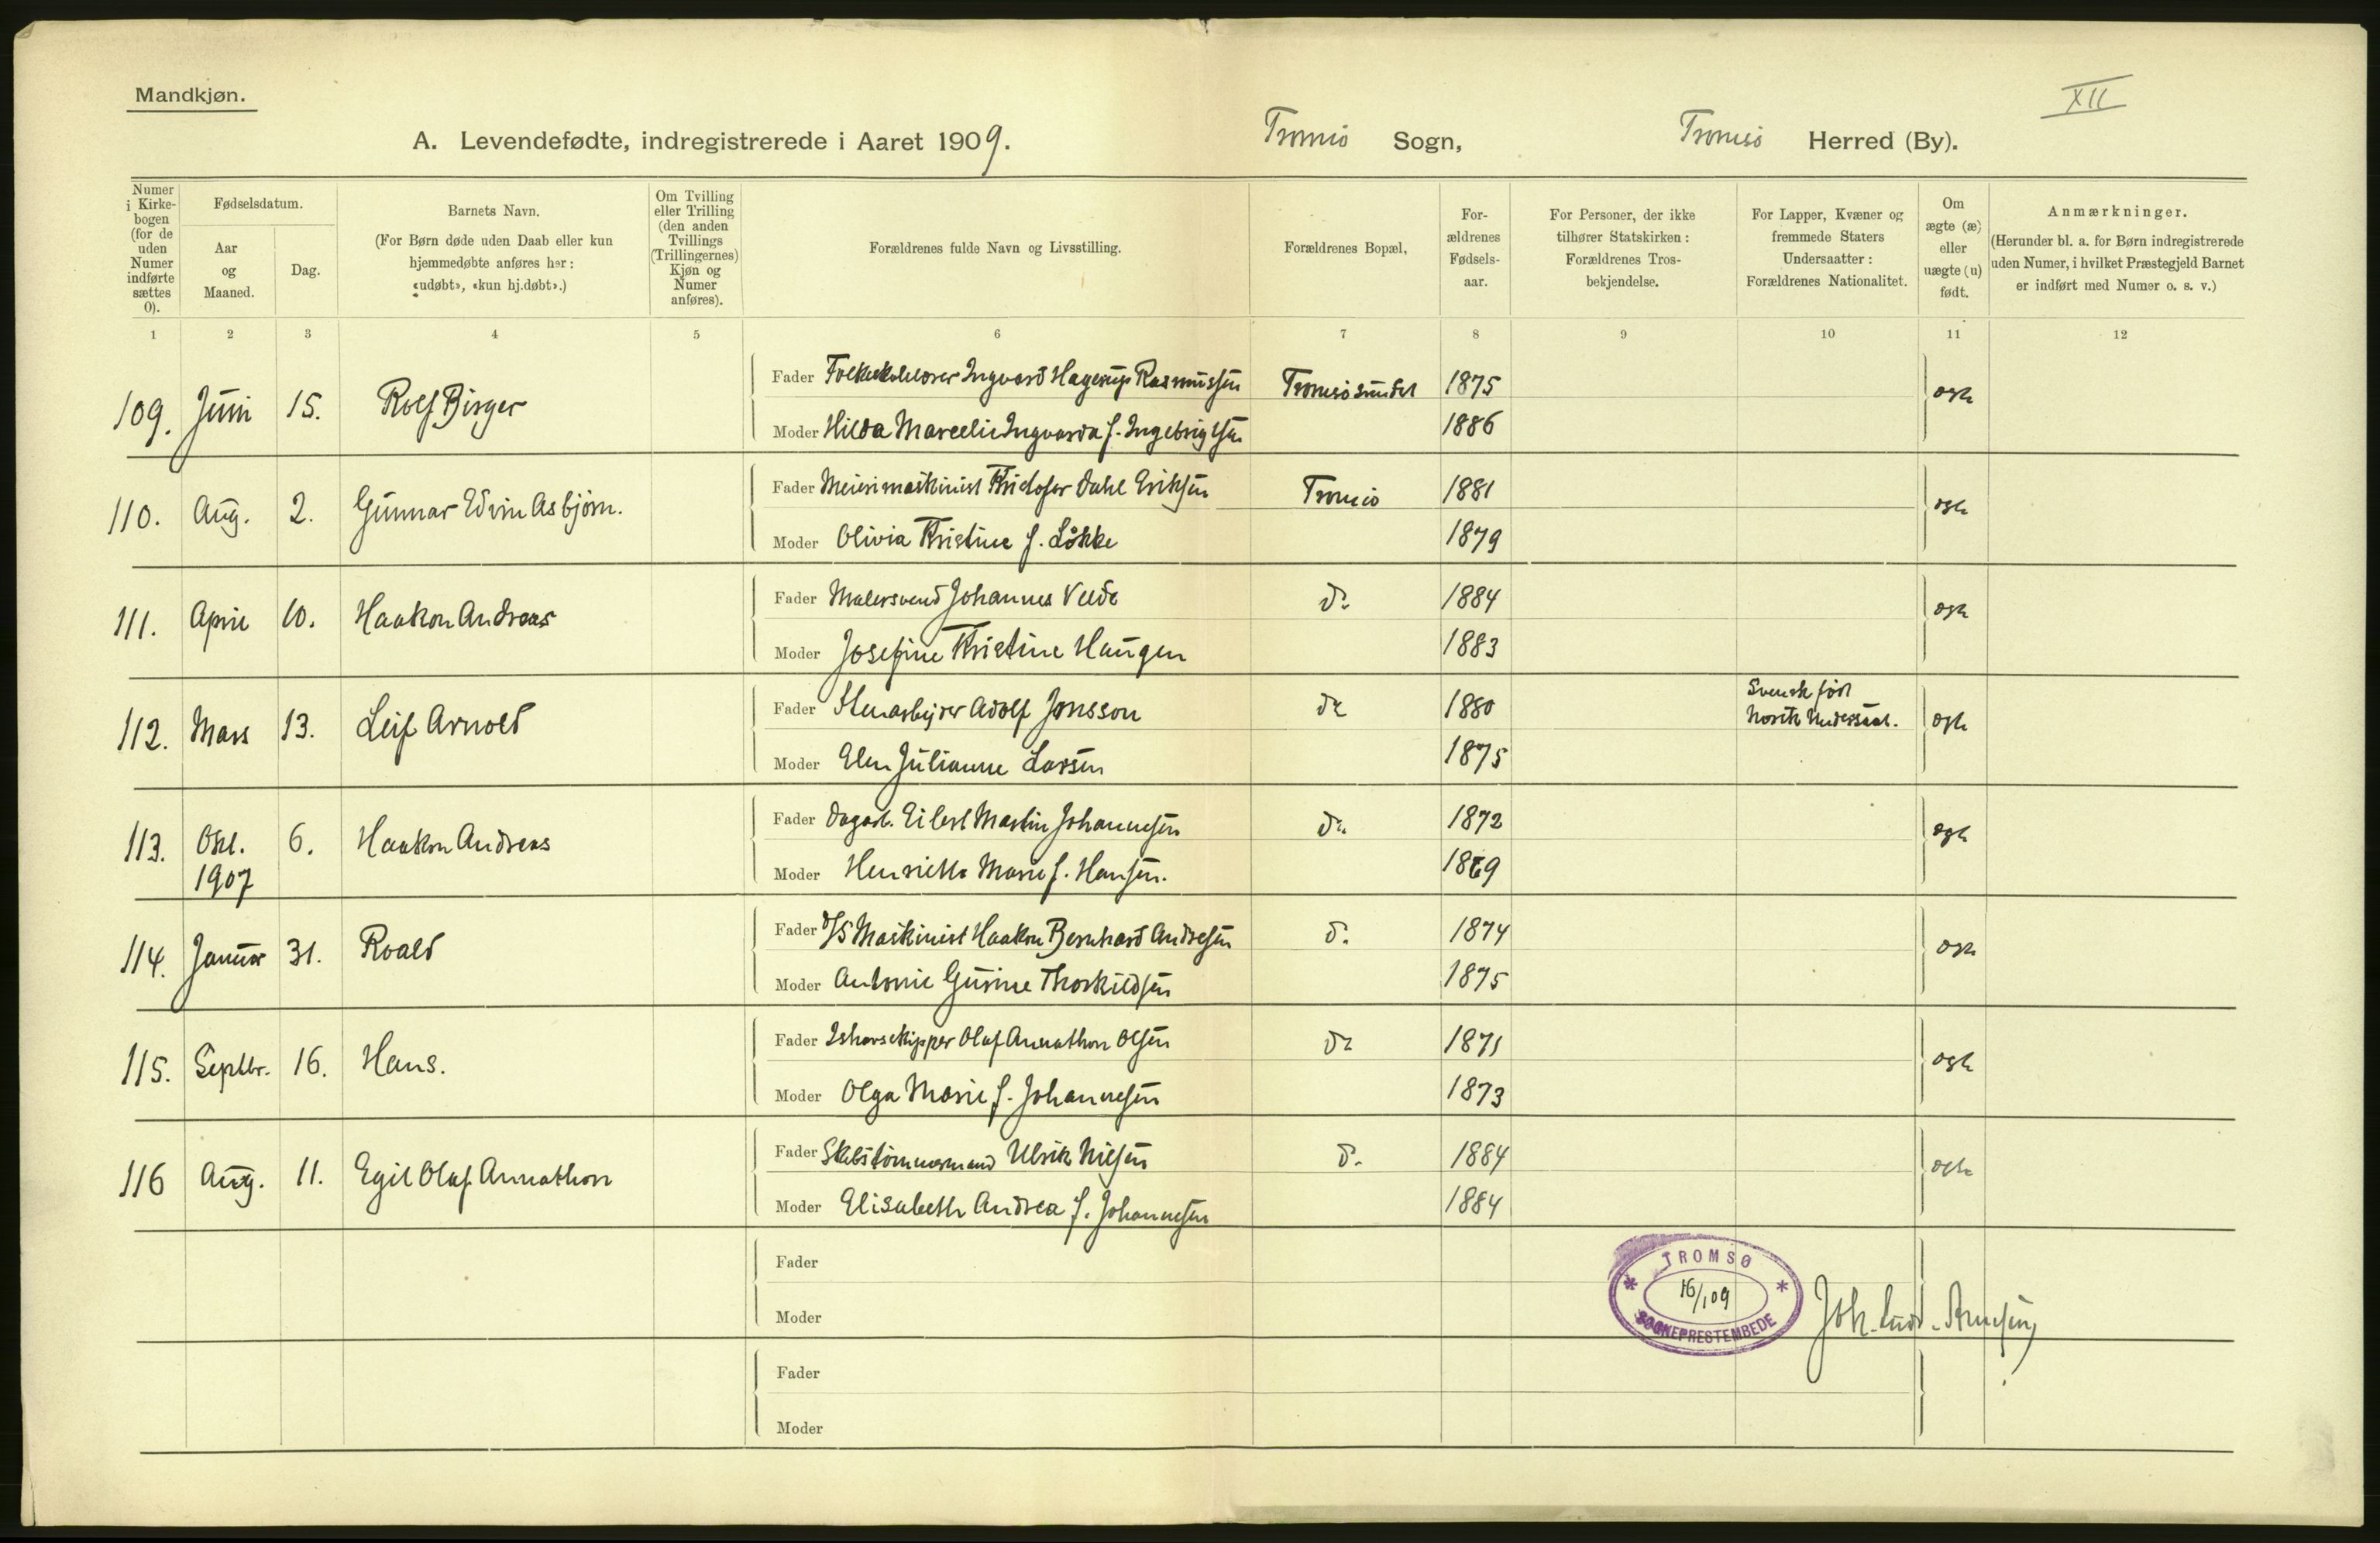 Mandkjøn.
XII
A. Levendefødte, indregistrerede i Aaret 1909. Tromsø Sogn, Tromsø Herred (By).
Numer i Kirke-bogen (for de uden Numer indførte sættes 0).
Fødselsdatum.
Aar og Maaned.
Dag.
Barnets Navn.
(For Børn døde uden Daab eller kun hjemmedøbte anføres her: «udøbt», «kun hj.døbt».)
Om Tvilling eller Trilling (den anden Tvillings (Trillingernes) Kjøn og Numer anføres).
Forældrenes fulde Navn og Livsstilling.
Forældrenes Bopæl,
For-ældrenes Fødsels-aar.
For Personer, der ikke tilhører Statskirken: Forældrenes Tros-bekjendelse.
For Lapper, Kvæner og fremmede Staters Undersaatter: Forældrenes Nationalitet.
Om ægte (æ) eller uægte (u) født.
Anmærkninger.
(Herunder bl. a. for Børn indregistrerede uden Numer, i hvilket Præstegjeld Barnet er indført med Numer o. s. v.)
1 2 3 4 5 6 7 8 9 10 11 12
109. Juni 15. Rolf Birger Fader Folkeskolelærer Ingvard Hagerup Rasmussen Tromsøsundet 1875 ægte
Moder Hilda Marcelie Ingvarda f. Ingebrigtsen 1886
110. Aug. 2. Gunnar Edvin Asbjørn. Fader Meierimaskinist Kristofer Dahl Eriksen Tromsø 1881 ægte
Moder Olivia Kristine f. Løkke 1879
111. April 10. Haakon Andreas Fader Malersvend Johannes Do 1884 ægte
Moder Josefine Kristine Haugen 1883
112. Mars 13. Leif Arnold Fader Stenarbeider Adolf Jonsson do 1880 Svensk født
norsk Undersaat. ægte
Moder Elen Julianne Larsen 1875
113. Okt. 6. Haakon Andreas Fader Dagarb. Eilert Martin Johannesen do 1872 ægte
1907 Moder Henriette Marie f. Hansen. 1869
114. Januar 31. Roald Fader D/S Maskinist Haakon Bernhard Andresen do 1874 ægte
Moder Antonie Gurine Thorkildsen 1875
115. Septbr. 16. Hans. Fader Ishavsskipper Olaf Annathon Olsen do 1871 ægte
Moder Olga Marie f. Johannesen 1873
116 Aug. 11. Egil Olaf Annathon Fader Skibstømmermand Ulrik Nilsen do 1884 ægte
Moder Elisabeth Andrea f. Johannesen 1884
Fader
Moder
TROMSØ
16/1 09
SOGNEPRESTEMBEDE
Fader
Moder